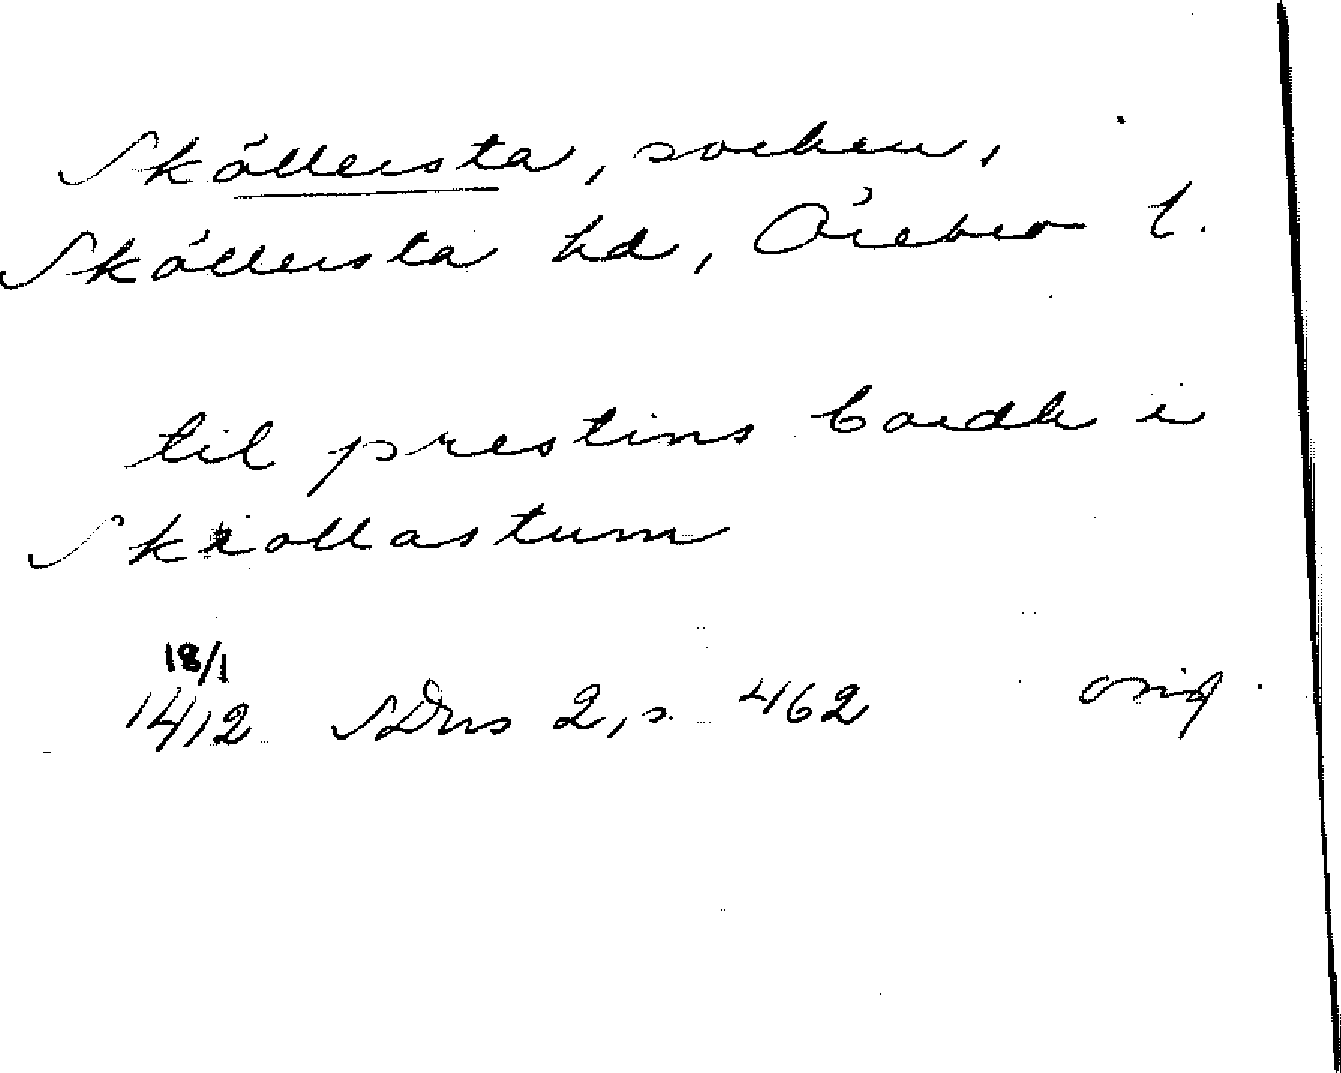 Sköllersta, socken,
Sköllersta hd, Örebro l.
til prestins bordh i
Skiollastum
18/1
1412 SDns 2, s. 462 orig.